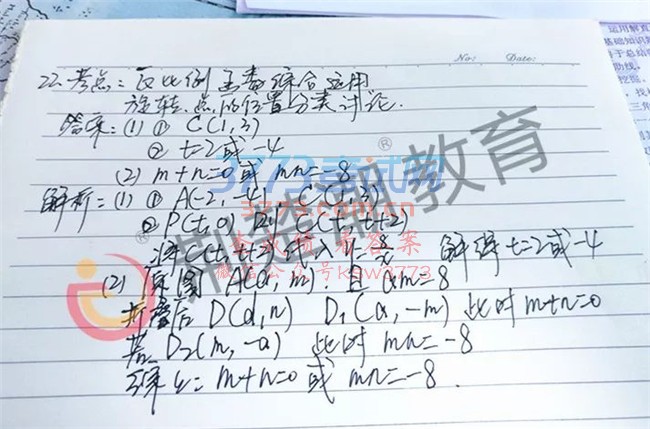 No: Date:
22.考点:反比例函数综合运用
旋转.点的位置分类讨论.
答案:(1)① C(1,3)
② t=2或-4
(2) m+n=0或 mn=-8
解析:(1)① A(-2,-4) C(1,3)
② P(t,0) 则 C(t,t+2)
将C(t,t+2)代入y=8/x 解得t=2或-4
(2) 原图 A(a,m) 且 am=8
折叠后 D(d,n) D₁(a,-m) 此时m+n=0
若 D₂(m,-a) 此时 mn=-8
综上: m+n=0 或 mn=-8.
®
教育
3773考试网
3773.com